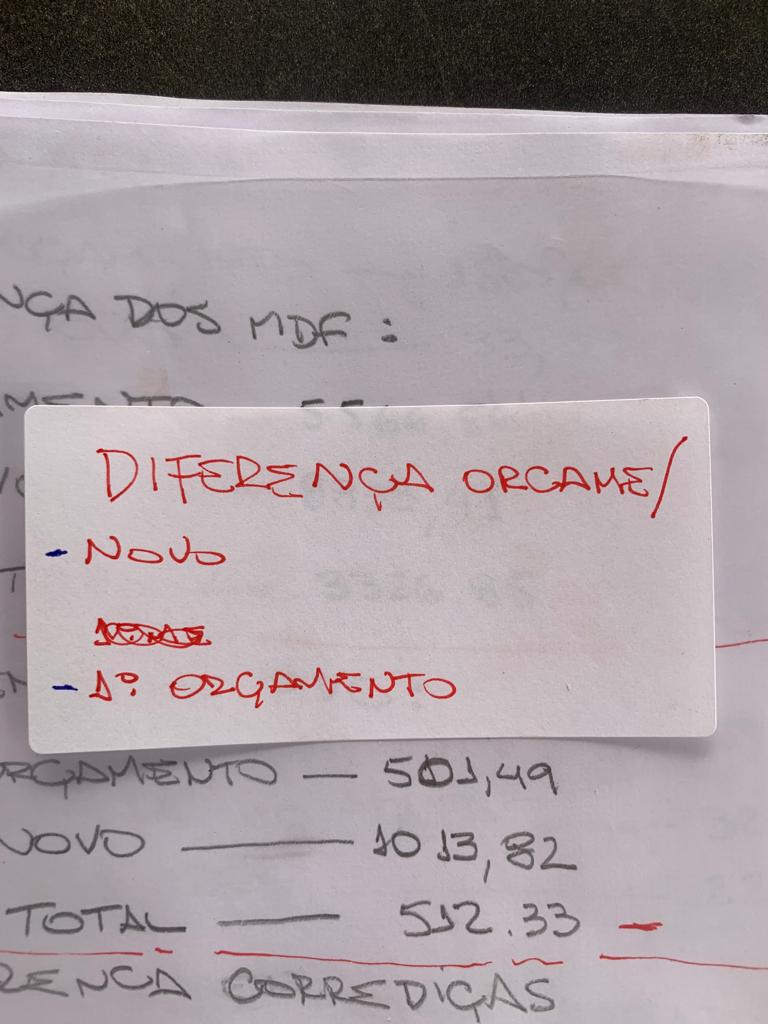 NÇA DOS MDF :
AMENTO
DIFERENÇA ORCAME/
- NOVO
- 1º. ORÇAMENTO
ORÇAMENTO — 501,49
NOVO — 1013,82
TOTAL — 512.33 -
RENÇA CORREDIÇAS